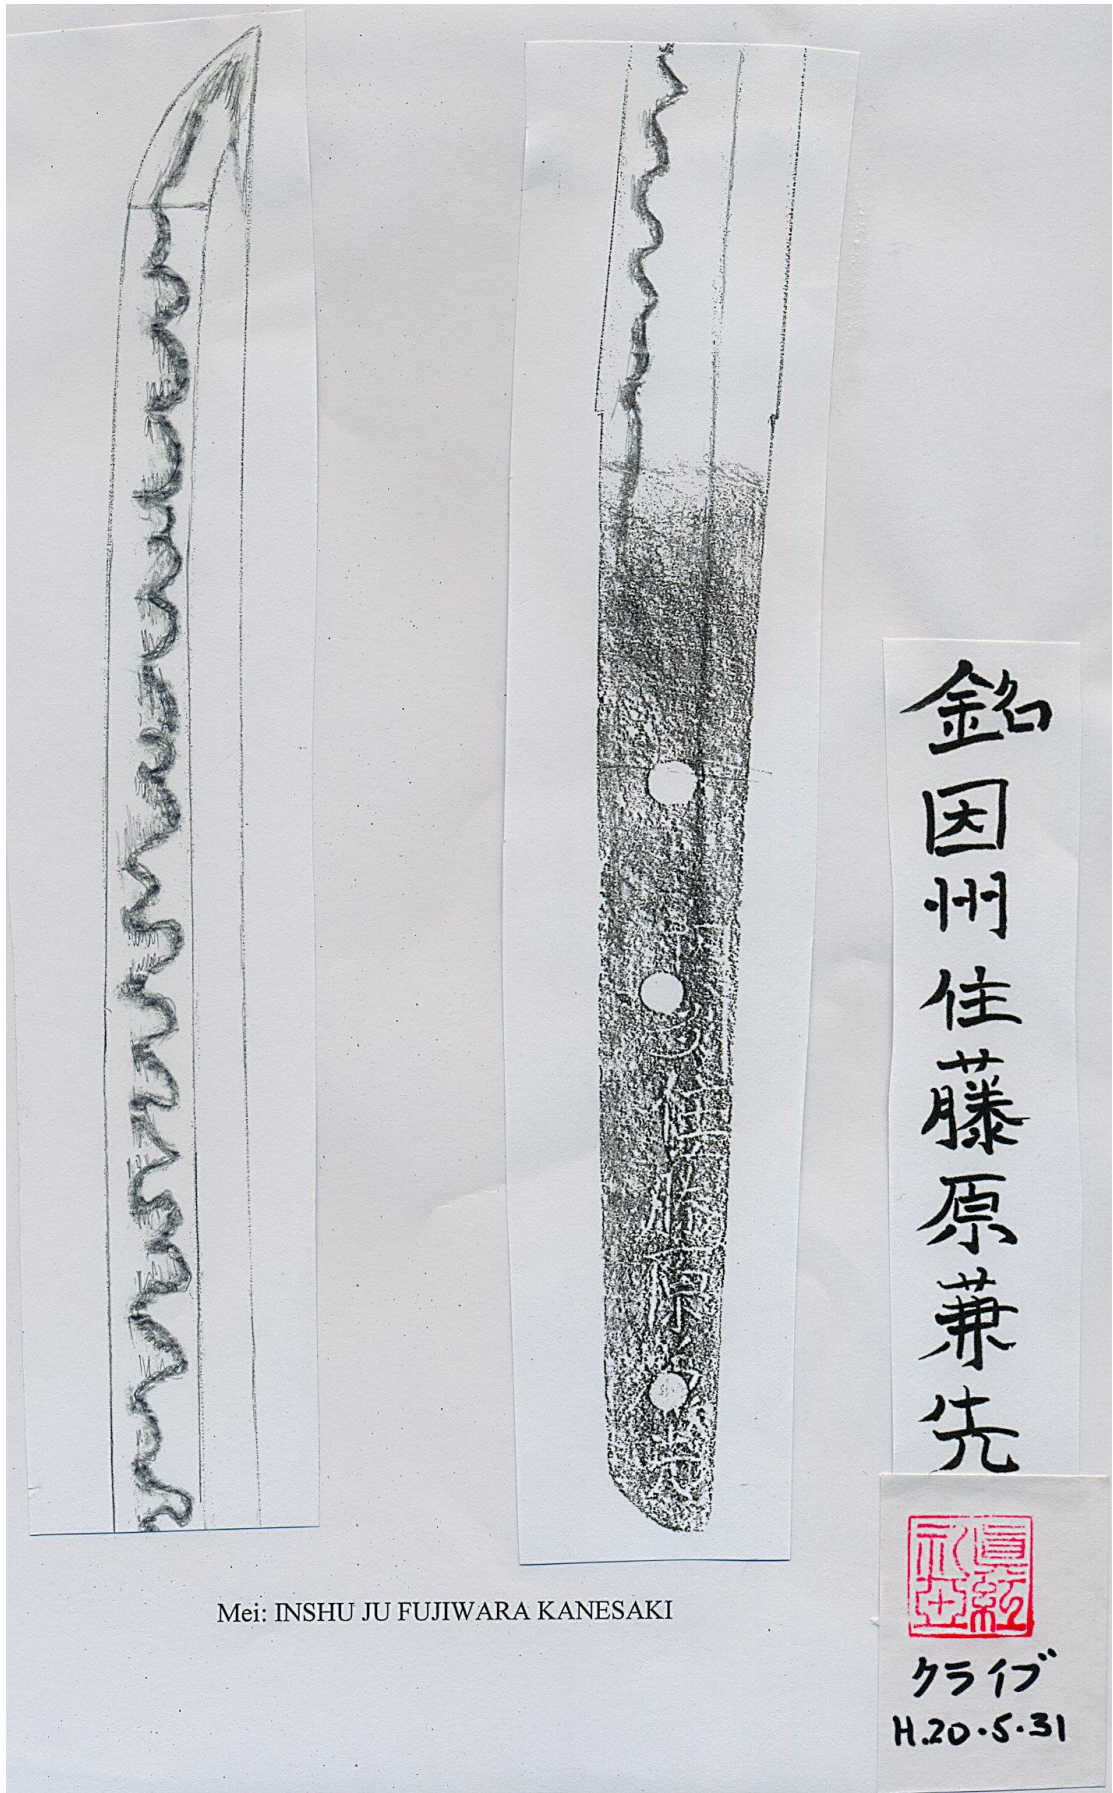 住藤原
銘因州住藤原兼先
Mei: INSHU JU FUJIWARA KANESAKI
クライブ
H.20.5.31